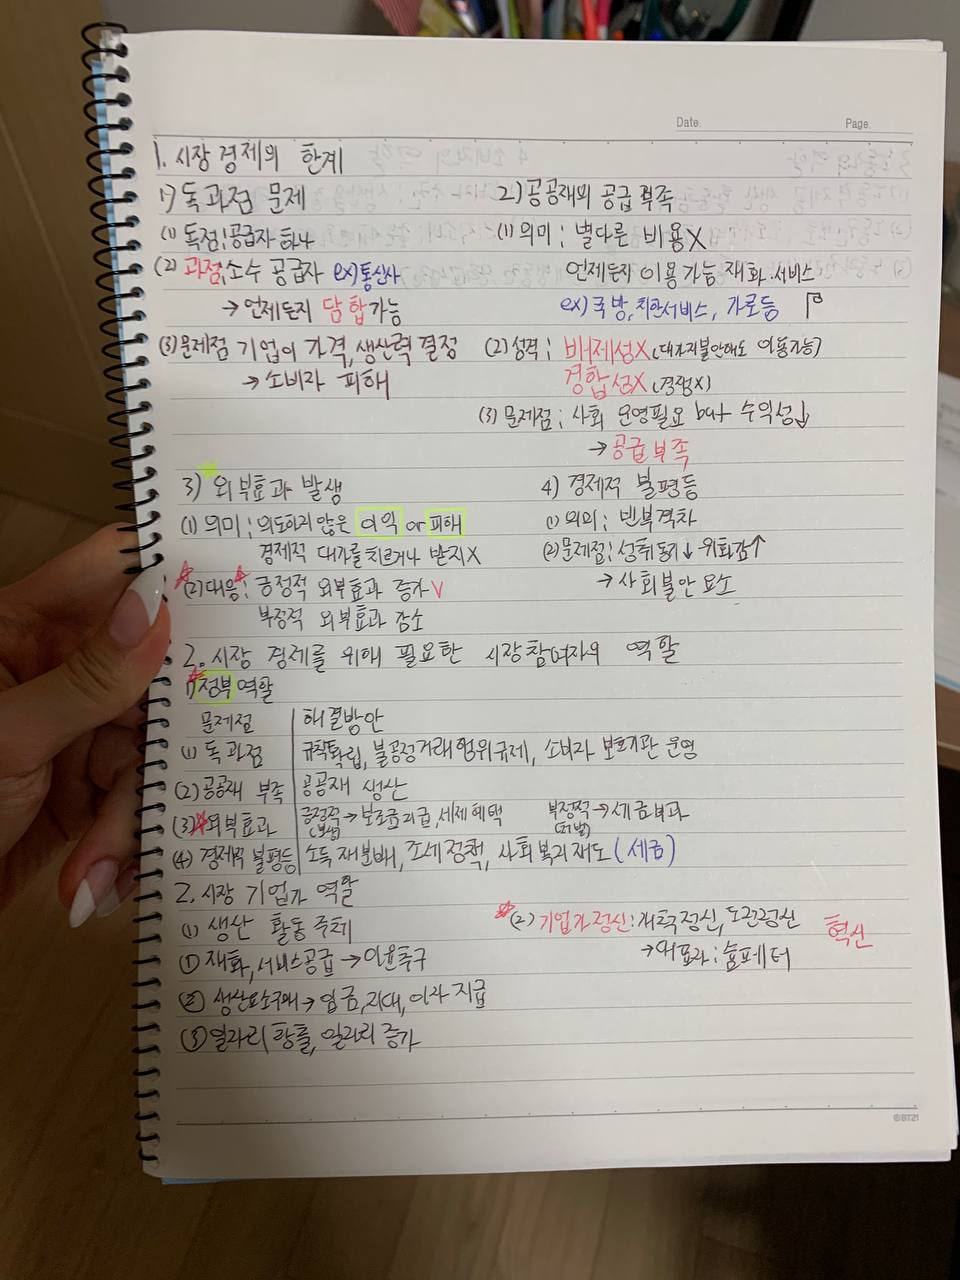 Date.
Page.
1. 시장 경제의 한계
1) 독과점 문제
(1) 독점; 공급자 하나
(2) 과점; 소수 공급자 ex) 통신사
→ 언제든지 담합 가능
(3) 문제점 기업이 가격, 생산력 결정
→ 소비자 피해
2) 공공재의 공급 부족
(1) 의미; 별다른 비용X
언제든지 이용 가능 재화·서비스
ex) 국방, 치안서비스, 가로등
(2) 성격; 배제성X (대가지불안해도 이용가능)
경합성X (경쟁X)
(3) 문제점; 사회 운영필요 but 수익성↓
→ 공급 부족
3) 외부효과 발생
(1) 의미; 의도하지 않은 이익 or 피해
경제적 대가를 치르거나 받지X
☆(2) 대응☆; 긍정적 외부효과 증가 V
부정적 외부효과 감소
4) 경제적 불평등
(1) 의의; 빈부격차
(2) 문제점; 성취동기↓ 위화감↑
→ 사회불안 요소
2. 시장 경제를 위해 필요한 시장참여자의 역할
☆1) 정부 역할
문제점 | 해결방안
(1) 독과점 | 규칙확립, 불공정거래행위규제, 소비자 보호기관 운영
(2) 공공재 부족 | 공공재 생산
(3)☆외부효과 | 긍정적 → 보조금 지급, 세제 혜택 부정적 → 세금 부과
(처벌)
(4) 경제적 불평등 | 소득 재분배, 조세 정책, 사회 복지 제도 (세금)
2. 시장 기업가 역할
(1) 생산 활동 주체
① 재화, 서비스공급 → 이윤추구
② 생산요소구매 → 임금, 지대, 이자 지급
③ 일자리 창출, 일자리 증가
☆(2) 기업가 정신: 개척정신, 도전정신 혁신
→ 대표자; 슘페터
©BT21